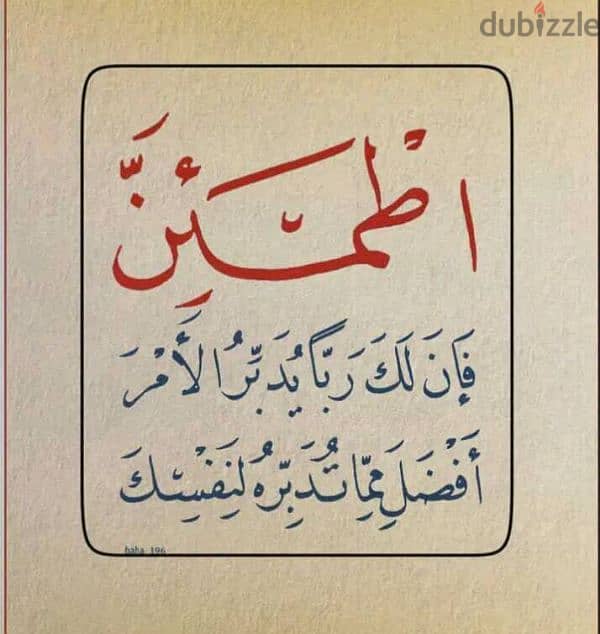 dubizzle
اطْمَئِنَّ
فَإِنَ لَكَ رَبًّا يُدَبِّرُ الأَمْرَ
أَفْضَلَ مِمِّا تُدَبِّرُهُ لِنَفْسِكَ
baha_196